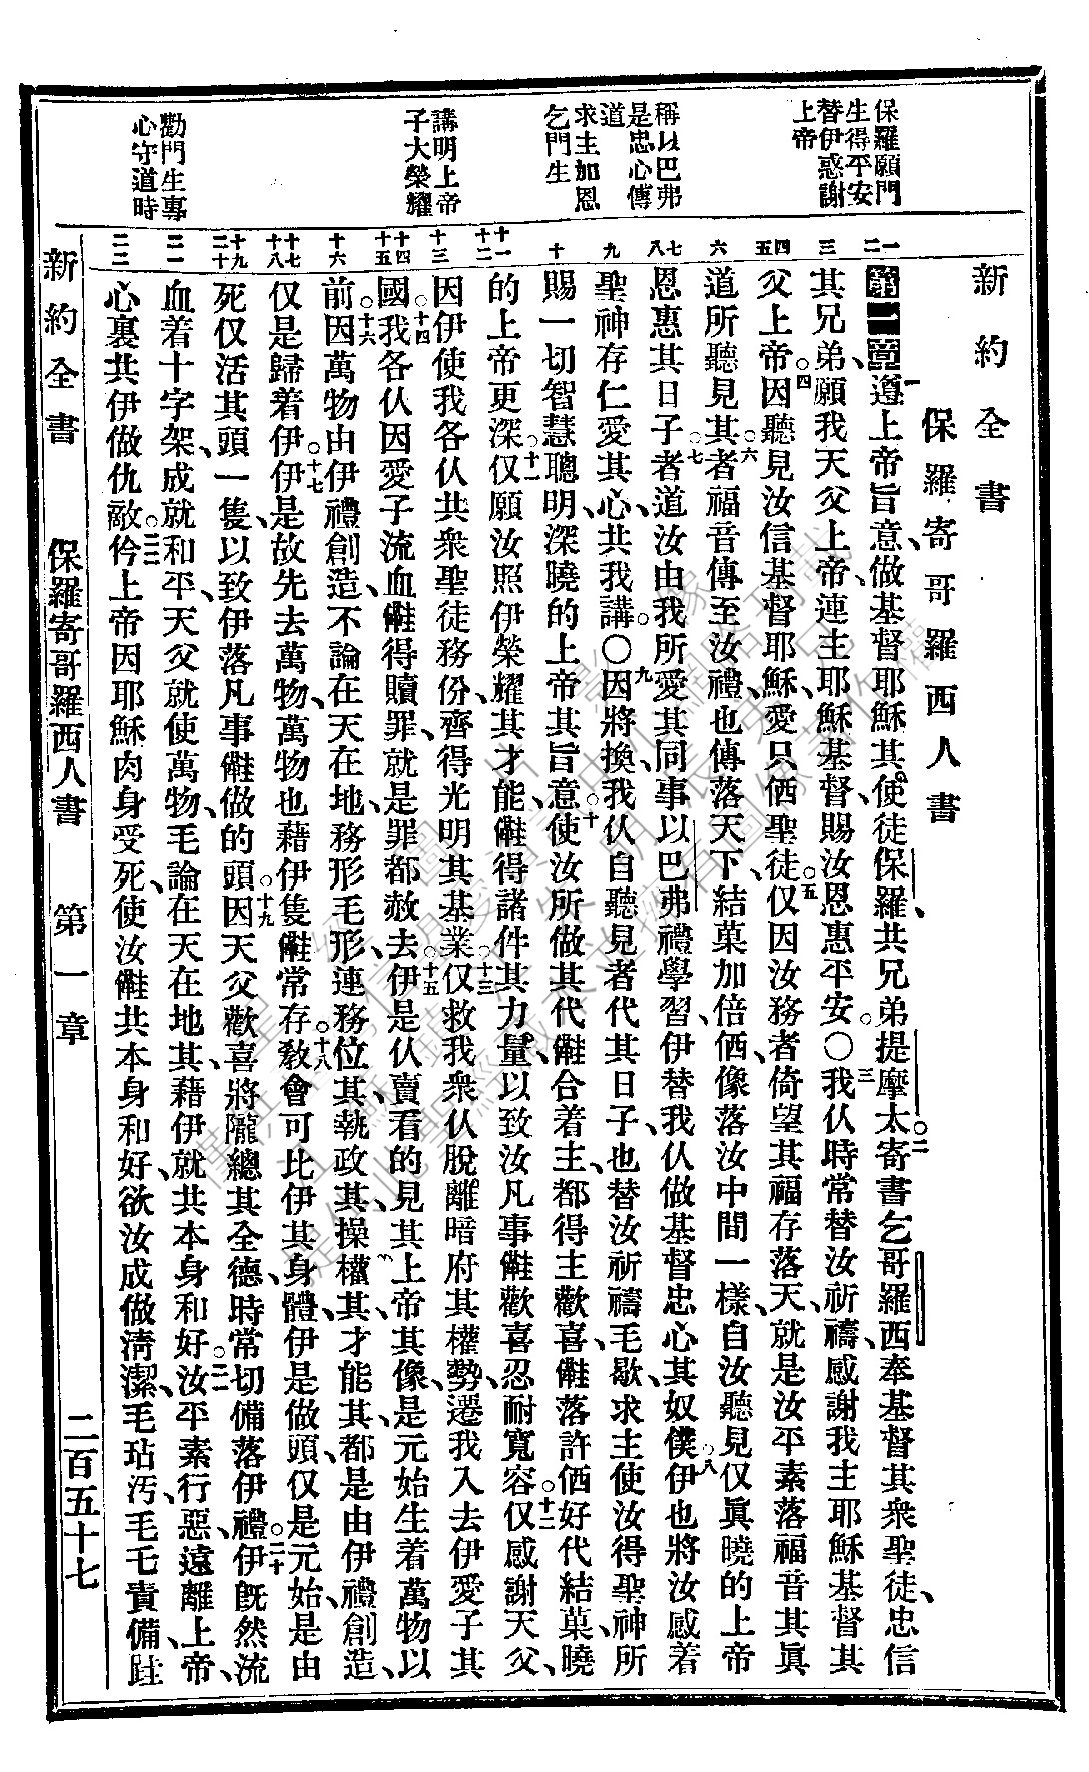 新約全書
保羅寄哥羅西人書
保羅願門
生得平安
替伊惑謝
上帝
稱以巴弗
是忠心傳
道
求主加恩
乞門生
講明上帝
子大榮耀
勸門生專
心守道時
一
二
三
四
五
六
七
八
九
十
十一
十二
十三
十四
十五
十六
十七
十八
十九
二十
二一
二二
第一章一遵上帝旨意、做基督耶穌其使徒保羅、共兄弟提摩太。二寄書乞哥羅西、奉基督其衆聖徒、忠信
其兄弟、願我天父上帝、連主耶穌基督、賜汝恩惠平安。〇三我仈時常替汝祈禱、感謝我主耶穌基督其
父上帝。四因聽見汝信基督耶穌、愛只㑚聖徒。五仅因汝務者倚望其福存落天、就是汝平素落福音其眞
道所聽見其。六者福音傳至汝禮、也傳落天下、結菓加倍㑚、像落汝中間一樣、自汝聽見仅眞曉的上帝
恩惠其日子。七者道汝由我所愛其同事以巴弗禮學習、伊替我仈做基督忠心其奴僕。八伊也將汝感着
聖神存仁愛其心、共我講。〇九因將換我仈自聽見者代其日子、也替汝祈禱毛歇、求主使汝得聖神所
賜一切智慧聰明、深曉的上帝其旨意。十使汝所做其代、㒓合着主、都得主歡喜、㒓落許㑚好代結菓、曉
的上帝更深。十一仅願汝照伊榮耀其才能、㒓得諸件其力量、以致汝凡事㒓歡喜忍耐寬容。十二仅感謝天父、
因伊使我各仈共衆聖徒務份、齊得光明其基業。十三仅救我衆仈脫離暗府其權勢、遷我入去伊愛子其
國。十四我各仈因愛子流血、㒓得贖罪、就是罪都赦去。十五伊是仈賣看的見其上帝其像、是元始生着萬物以
前。十六因萬物由伊禮創造、不論在天在地、務形毛形、連務位其、執政其、操權其、才能其、都是由伊禮創造、
仅是歸着伊。十七伊是故先去萬物、萬物也藉伊隻㒓常存。十八敎會可比伊其身體、伊是做頭、仅是元始、是由
死仅活其頭一隻、以致伊落凡事㒓做的頭。十九因天父歡喜將隴總其全德、時常切備落伊禮。二十伊旣然流
血着十字架、成就和平、天父就使萬物、毛論在天在地其、藉伊就共本身和好。二一汝平素行惡、遠離上帝、
心裏共伊做仇敵。二二仱上帝因耶穌肉身受死、使汝㒓共本身和好、欲汝成做淸潔、毛玷汚、毛乇責備、䟕
新約全書 保羅寄哥羅西人書 第一章 二百五十七